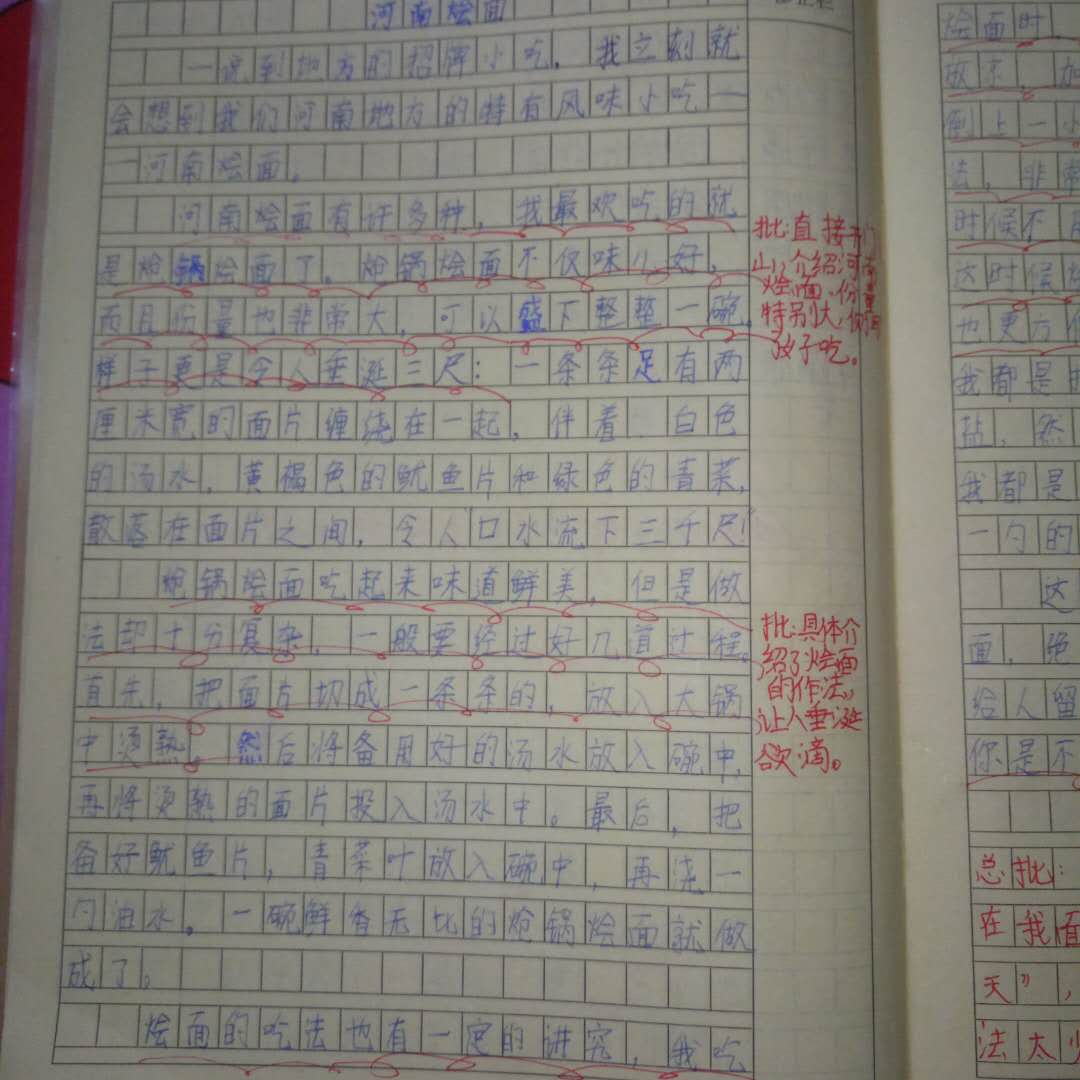 河南烩面
一说到地方的招牌小吃，我立刻就
会想到我们河南地方的特有风味小吃一
一河南烩面。
河南烩面有许多种，我最欢吃的就
是炝锅烩面了。炝锅烩面不仅味儿好，
而且份量也非常大，可以盛下整整一碗。
样子更是令人垂涎三尺：一条条足有两
厘米宽的面片缠绕在一起，伴着白色
的汤水，黄褐色的鱿鱼片和绿色的青菜，
散落在面片之间，令人口水流下三千尺！
炝锅烩面吃起来味道鲜美，但是做
法却十分复杂，一般要经过好几首过程。
首先，把面片切成一条条的，放入大锅
中烫熟，然后将备用好的汤水放入碗中，
再将烫熟的面片投入汤水中。最后，把
备好鱿鱼片，青菜叶放入碗中，再浇一
勺油水。一碗鲜香无比的炝锅烩面就做
成了。
烩面的吃法也有一定的讲究，我吃
批：直接开门
山，介绍河南
烩面，份量
特别大，
孩子吃。
批：具体介
绍了烩面
的作法，
让人垂涎
欲滴。
烩面时，
放不，加
倒上一小
法，非常
时候不
这时候
也更方便
我都是
盐，然
我都是
一勺的
这
面，绝
给人留
你是不
总批：
在我看
天”，
法太少